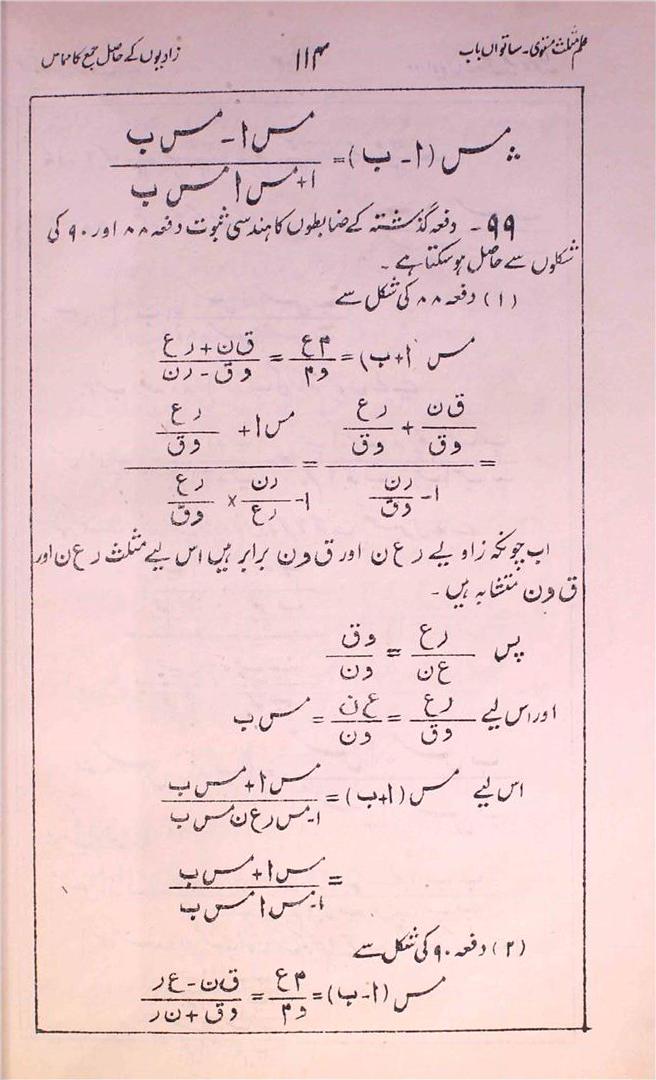 علم مثلث مستوی۔ ساتواں باب ۱۱۴ زاویوں کے حاصل جمع کا مماس
∴ مس (ا - ب) = (مس ا - مس ب) / (۱ + مس ا مس ب)
۹۹ - دفعہ گذشتہ کے ضابطوں کا ہندسی ثبوت دفعہ ۸۸ اور ۹۰ کی
شکلوں سے حاصل ہوسکتا ہے ۔
(۱) دفعہ ۸۸ کی شکل سے
مس (ا + ب) = م ع / و م = (ق ن + ر ع) / (و ق - ر ن)
= (ق ن / و ق + ر ع / و ق) / (۱ - ر ن / و ق) = (مس ا + ر ع / و ق) / (۱ - ر ن / ر ع × ر ع / و ق)
اب چونکہ زاویے ر ع ن اور ق و ن برابر ہیں اس لیے مثلث ر ع ن اور
ق و ن متشابہ ہیں ۔
پس ر ع / ع ن = و ق / و ن
اور اس لیے ر ع / و ق = ع ن / و ن = مس ب
اس لیے مس (ا + ب) = (مس ا + مس ب) / (۱ - مس ر ع ن مس ب)
= (مس ا + مس ب) / (۱ - مس ا مس ب)
(۲) دفعہ ۹۰ کی شکل سے
مس (ا - ب) = م ع / و م = (ق ن - ع ر) / (و ق + ن ر)